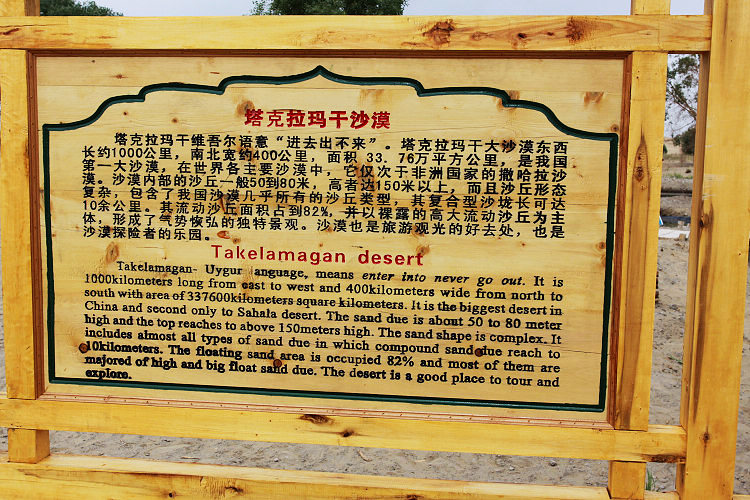 塔克拉玛干沙漠
塔克拉玛干维吾尔语意“进去出不来”。塔克拉玛干大沙漠东西
长约1000公里，南北宽约400公里，面积 33. 76万平方公里，是我国
第一大沙漠，在世界各主要沙漠中，它仅次于非洲国家的撒哈拉沙
漠。沙漠内部的沙丘一般50到80米，高者达150米以上，而且沙丘形态
复杂，包含了我国沙漠几乎所有的沙丘类型，其复合型沙垅长可达
10余公里。其流动沙丘面积占到82%，并以裸露的高大流动沙丘为主
体，形成了气势恢弘的独特景观。沙漠也是旅游观光的好去处，也是
沙漠探险者的乐园。
Takelamagan desert
Takelamagan- Uygur language, means enter into never go out. It is
1000kilometers long from east to west and 400kilometers wide from north to
south with area of 337600kilometers square kilometers. It is the biggest desert in
China and second only to Sahala desert. The sand due is about 50 to 80 meter
high and the top reaches to above 150meters high. The sand shape is complex. It
includes almost all types of sand due in which compound sand due reach to
10kilometers. The floating sand area is occupied 82% and most of them are
majored of high and big float sand due. The desert is a good place to tour and
explore.